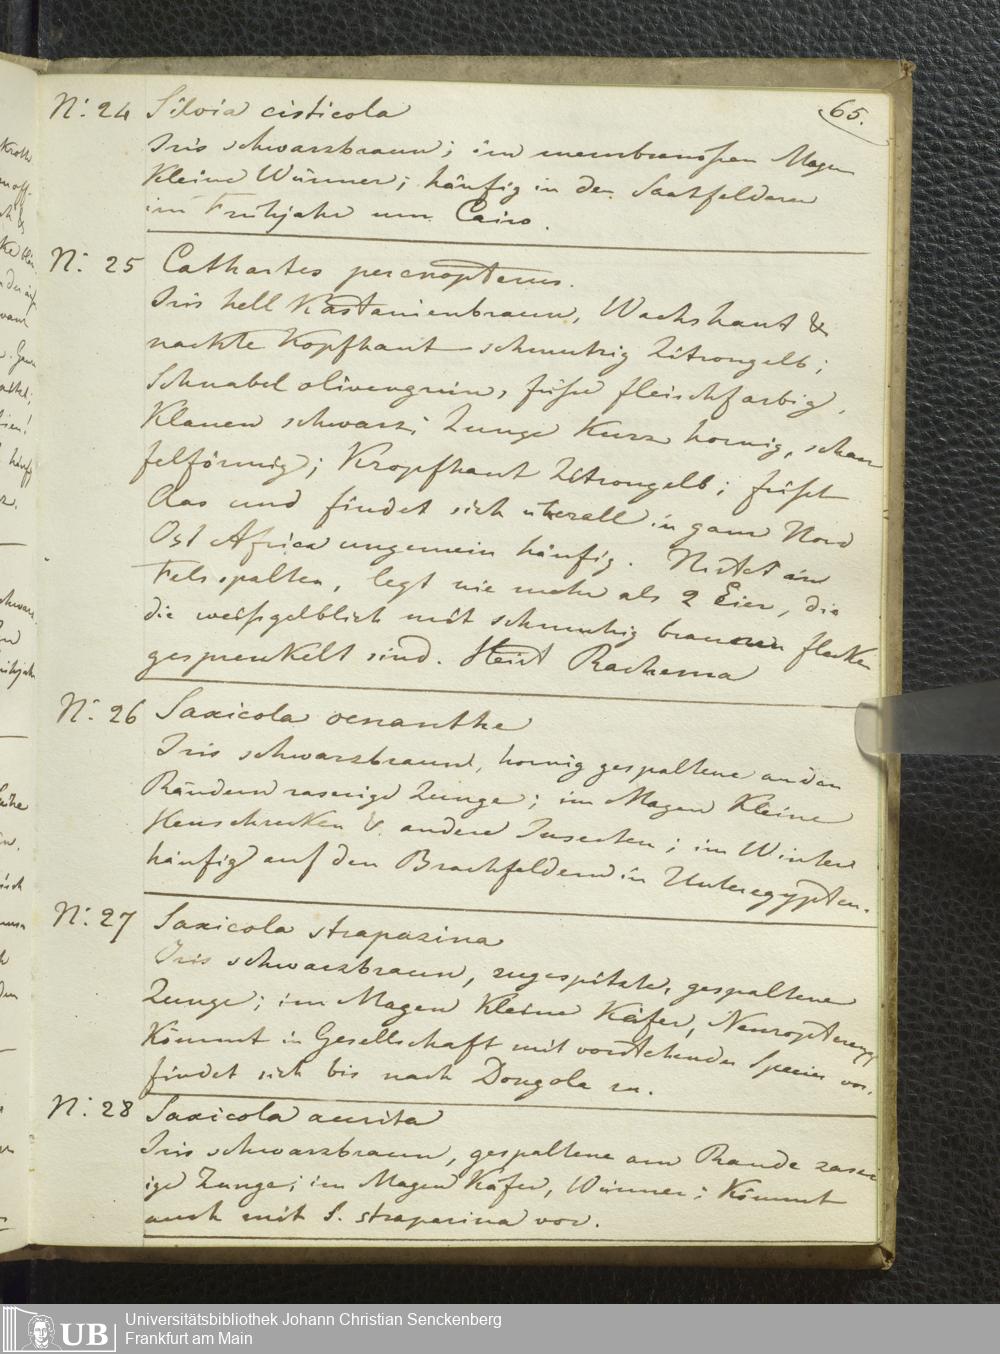 65.
N: 24 Silvia cisticola
Iris schwarzbraun; im membranosen Magen
kleine Würmer; häufig in den Saatfeldern
im Frühjahr um Cairo.
N: 25 Cathartes percnopterus.
Iris hell Kastanienbraun, Wachshaut &
nackte Kopfhaut schmutzig Zitrongelb;
Schnabel olivengrün, füße fleischfarbig,
Klauen schwarz; Zunge Kurz hornig, schau
felförmig; Kropfhaut Zitrongelb; frißt
Aas und findet sich überall in ganz Nord
Ost Africa ungemein häufig. Nistet in
Felsspalten, legt nie mehr als 2 Eier, die
die weißgelblich mit schmutzig braunen flecken
gesprenkelt sind. Heist Rachema
N: 26 Saxicola oenanthe
Iris schwarzbraun, hornig gespaltene an den
Rändern raserige Zunge; im Magen Kleine
Heuschrecken & andere Insecten; im Winter
häufig auf den Brachfeldern in Unteregypten.
N: 27 Saxicola strapazina
Iris schwarzbraun, zugespitzte, gespaltene
Zunge; im Magen Kleine Käfer, Neuroptern;
Kömmt in Gesellschaft mit vorstehender Species vor,
findet sich bis nach Dongola zu.
N: 28 Saxicola aurita
Iris schwarzbraun, gespaltene am Rande zaser
ige Zunge; im Magen Käfer, Würmer; Kömmt
auch mit S. strapazina vor.
UB Universitätsbibliothek Johann Christian Senckenberg
Frankfurt am Main